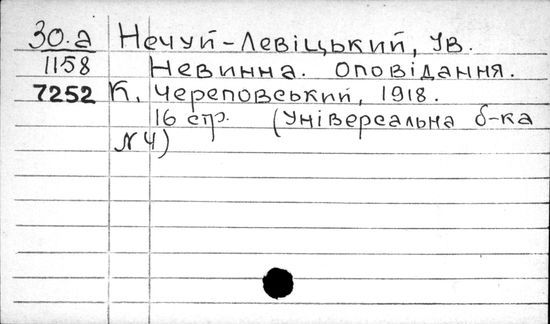 30.а Нечуй-Левіцький, Ів.
1158 Невинна. Оповідання.
7252 К. Череповський, 1918.
16 стр. (Універсальна б-ка
N 4)